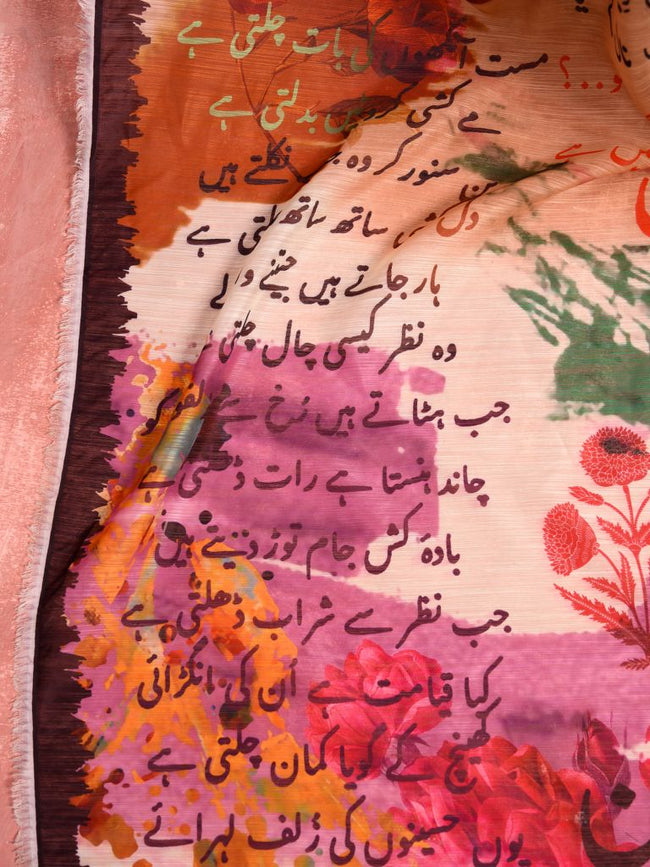 مست آنکھوں کی بات چلتی ہے
مے کشی کروٹیں بدلتی ہے
بن سنور کر وہ جب نکلتے ہیں
دل ساتھ ساتھ چلتی ہے
ہار جاتے ہیں جیتنے والے
وہ نظر کیسی چال چلتی
جب ہٹاتے ہیں رُخ سے زلفوں کو
چاند ہنستا ہے رات ڈھلتی ہے
بادہ کش جام توڑ دیتے ہیں
جب نظر سے شراب ڈھلتی ہے
کیا قیامت ہے اُن کی انگڑائی
کھینچ کے گویا کمان چلتی ہے
یوں حسینوں کی زُلف لہرائے